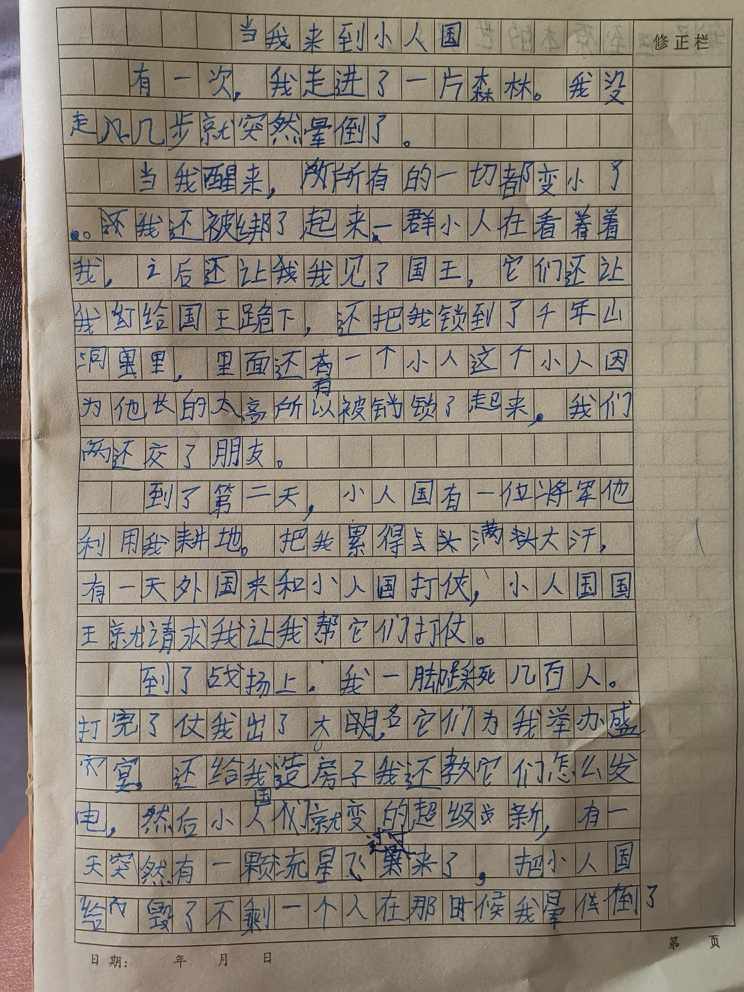 当我来到小人国
修正栏
有一次，我走进了一片森林。我没
走几步就突然晕倒了。
当我醒来，所有的一切都变小了
。还我还被绑了起来，一群小人在看着着
我，之后还让我我见了国王，它们还让
我给国王跪下，还把我锁到了千年山
洞里，里面还有一个小人这个小人因
为他长的太高所以被锁了起来，我们
两还交了朋友。
到了第二天，小人国有一位将军他
利用我耕地。把我累得满头大汗，
有一天外国来和小人国打仗，小人国国
王就请求我让我帮它们打仗。
到了战场上，我一脚踩死几百人。
打完了仗我出了大名它们为我举办盛
宴，还给我造房子我还教它们怎么发
电，然后小人国就变的超级新，有一
天突然有一颗流星飞过来了，把小人国
给毁了不剩一个人在那时候我晕倒了
日期： 年 月 日
第 页